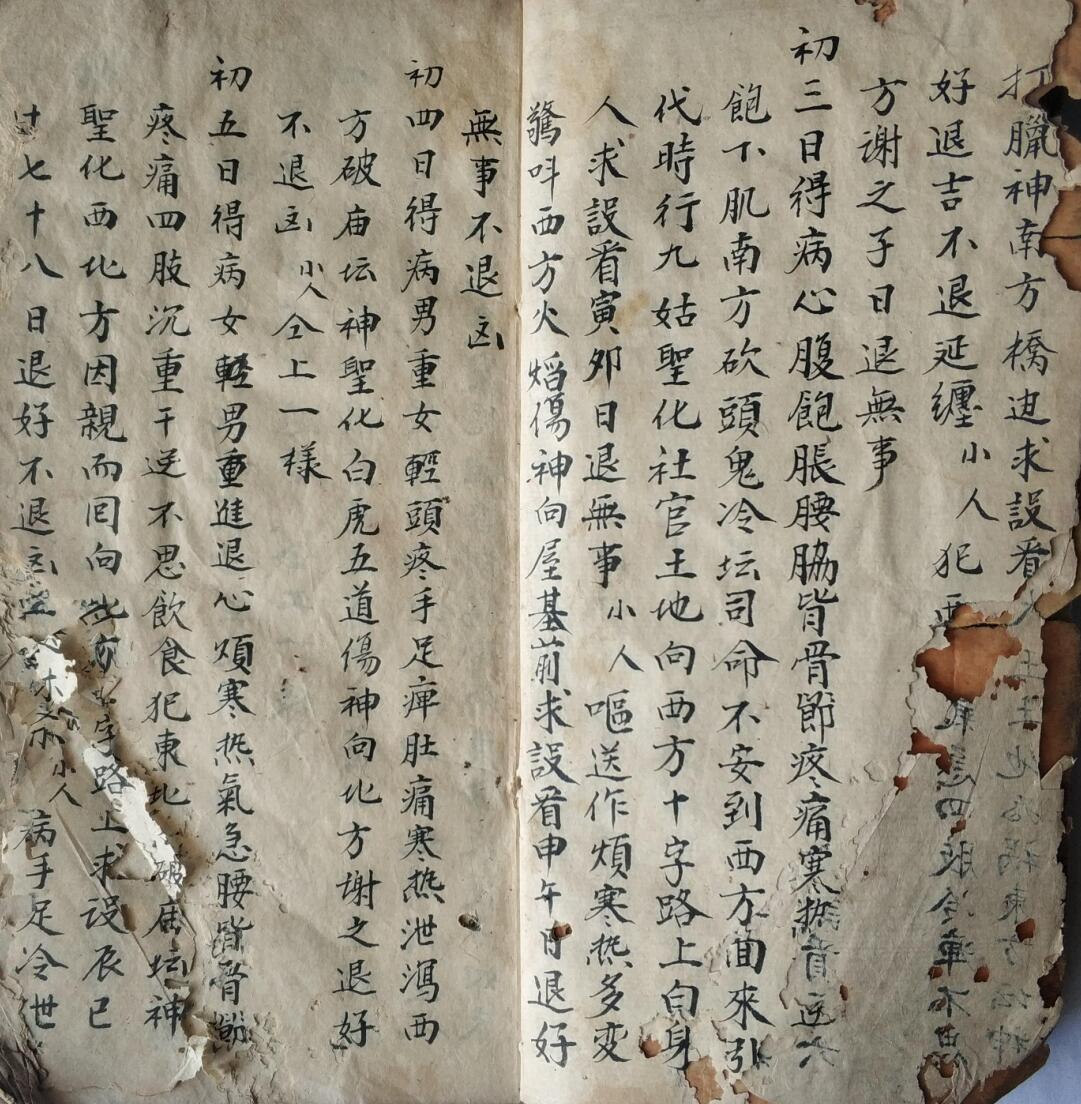 打臘神南方橋边求設看
好退吉不退延纏小人犯西
方谢之子日退無事
初三日得病心腹飽脹腰脇背骨節疼痛寒热
飽下肌南方砍頭鬼冷坛司命不安到西方面來引
代時行九姑聖化社官土地向西方十字路上白身
人求設看寅夘日退無事小人嘔送作煩寒热多变
驚呌西方火熖傷神向屋基前求設看申午日退好
無事不退凶
初四日得病男重女輕頭疼手足痺肚痛寒热泄瀉西
方破庙坛神聖化白虎五道傷神向北方謝之退好
不退凶小人仝上一様
初五日得病女輕男重進退心煩寒热氣急腰背骨節
疼痛四肢沉重干逆不思飲食犯東北破庙坛神
聖化西北方因親而囘向字路上求設辰巳
十七十八日退好不退凶小人病手足冷世